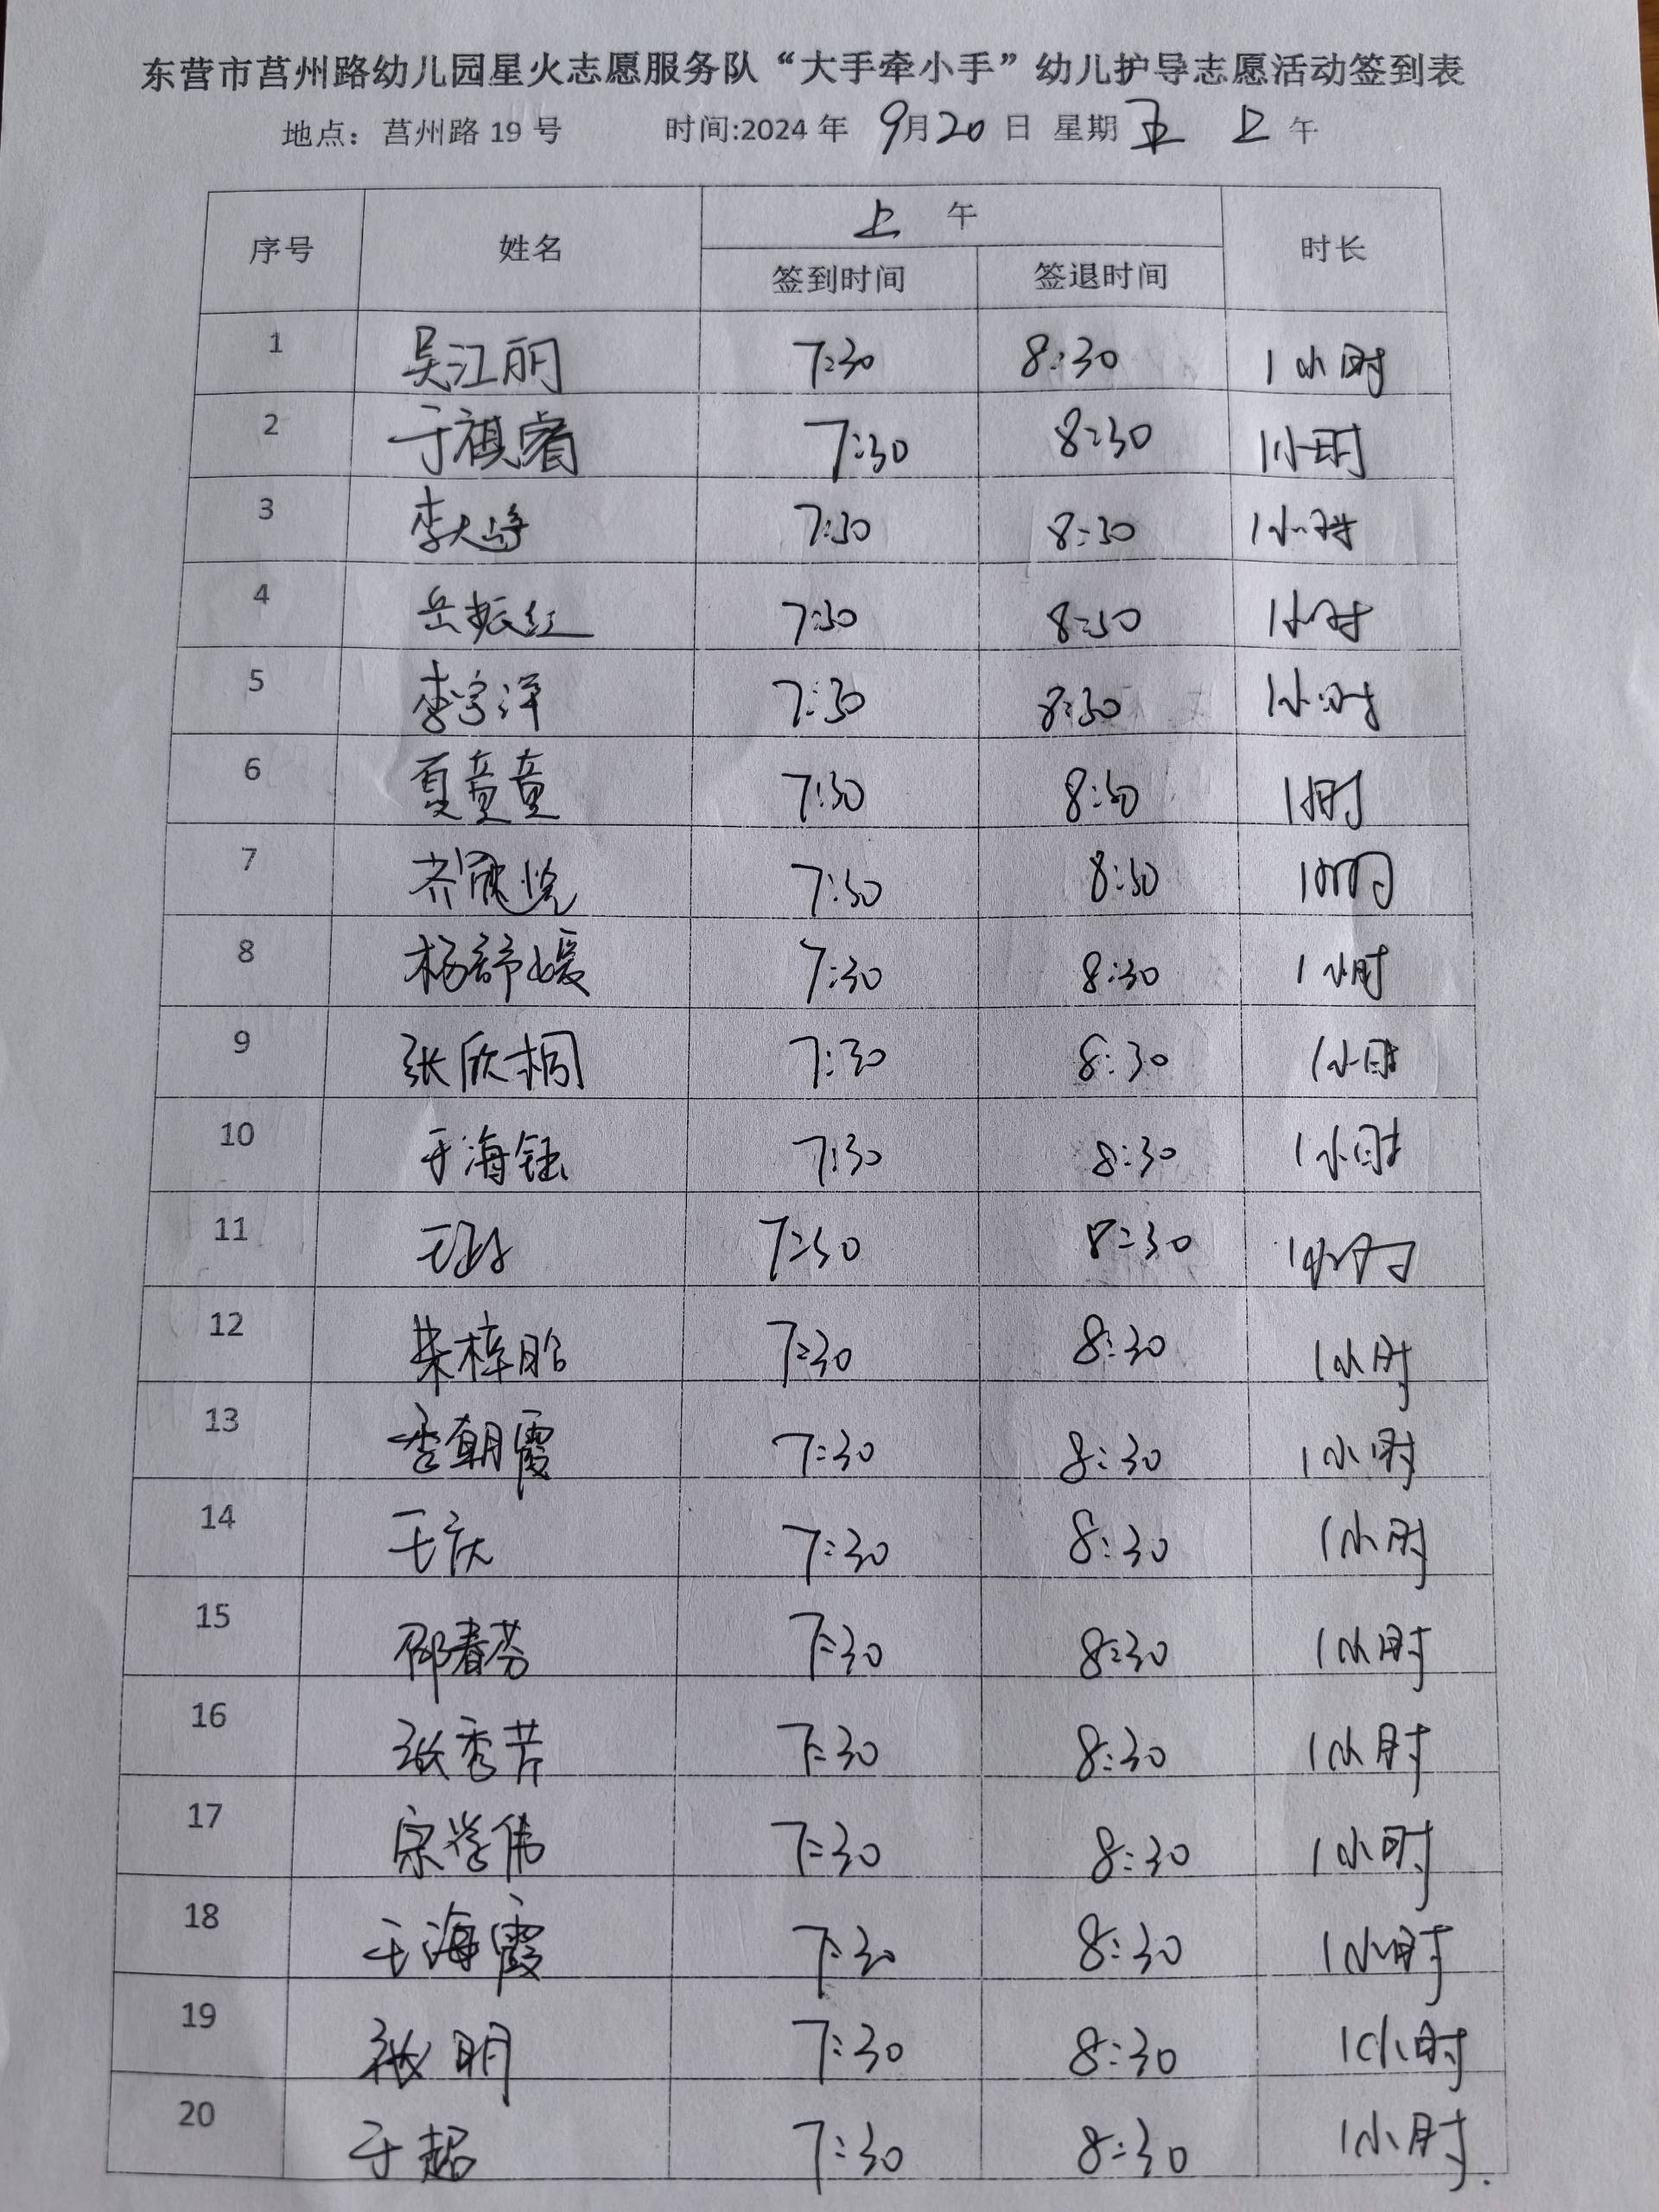 东营市莒州路幼儿园星火志愿服务队“大手牵小手”幼儿护导志愿活动签到表
地点：莒州路 19 号 时间:2024 年 9月20日 星期五 上午
序号 姓名 上午 时长
签到时间 签退时间
1 吴江丽 7:30 8:30 1小时
2 于祺睿 7:30 8:30 1小时
3 李大海 7:30 8:30 1小时
4 岳振红 7:30 8:30 1小时
5 李宇洋 7:30 8:30 1小时
6 夏童童 7:30 8:30 1小时
7 齐 7:30 8:30 1小时
8 杨舒媛 7:30 8:30 1小时
9 张欣桐 7:30 8:30 1小时
10 于海钰 7:30 8:30 1小时
11 7:30 8:30 1小时
12 柴梓晗 7:30 8:30 1小时
13 李朝霞 7:30 8:30 1小时
14 王庆 7:30 8:30 1小时
15 邵春芬 7:30 8:30 1小时
16 张秀芹 7:30 8:30 1小时
17 宋学伟 7:30 8:30 1小时
18 于海霞 7:30 8:30 1小时
19 张明 7:30 8:30 1小时
20 于超 7:30 8:30 1小时